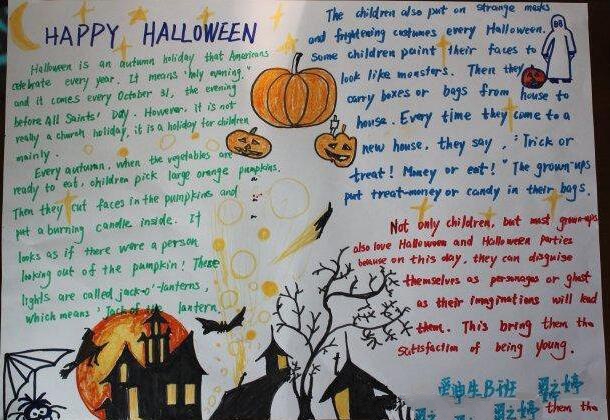 HAPPY HALLOWEEN
Halloween is an autumn holiday that Americans
celebrate every year. It means "holy evening,"
and it comes every October 31, the evening
before All Saints' Day. However, it is not
really a church holiday, it is a holiday for children
mainly.
Every autumn, when the vegetables are
ready to eat, children pick large orange pumpkins.
Then they cut faces in the pumpkins and
put a burning candle inside. It
looks as if there were a person
looking out of the pumpkin! These
lights are called jack-o'-lanterns,
which means "Jack of the lantern.
The children also put on strange masks
and frightening costumes every Halloween.
Some children paint their faces to
look like monsters. Then they
carry boxes or bags from house to
house. Every time they come to a
new house, they say, "Trick or
treat! Money or eat!" The grown-ups
put treat-money or candy in their bags.
Not only children, but most grown-ups
also love Halloween and Halloween parties
because on this day, they can disguise
themselves as personages or ghost
as their imaginations will lead
them. This bring them the
satisfaction of being young.
生B班
them the